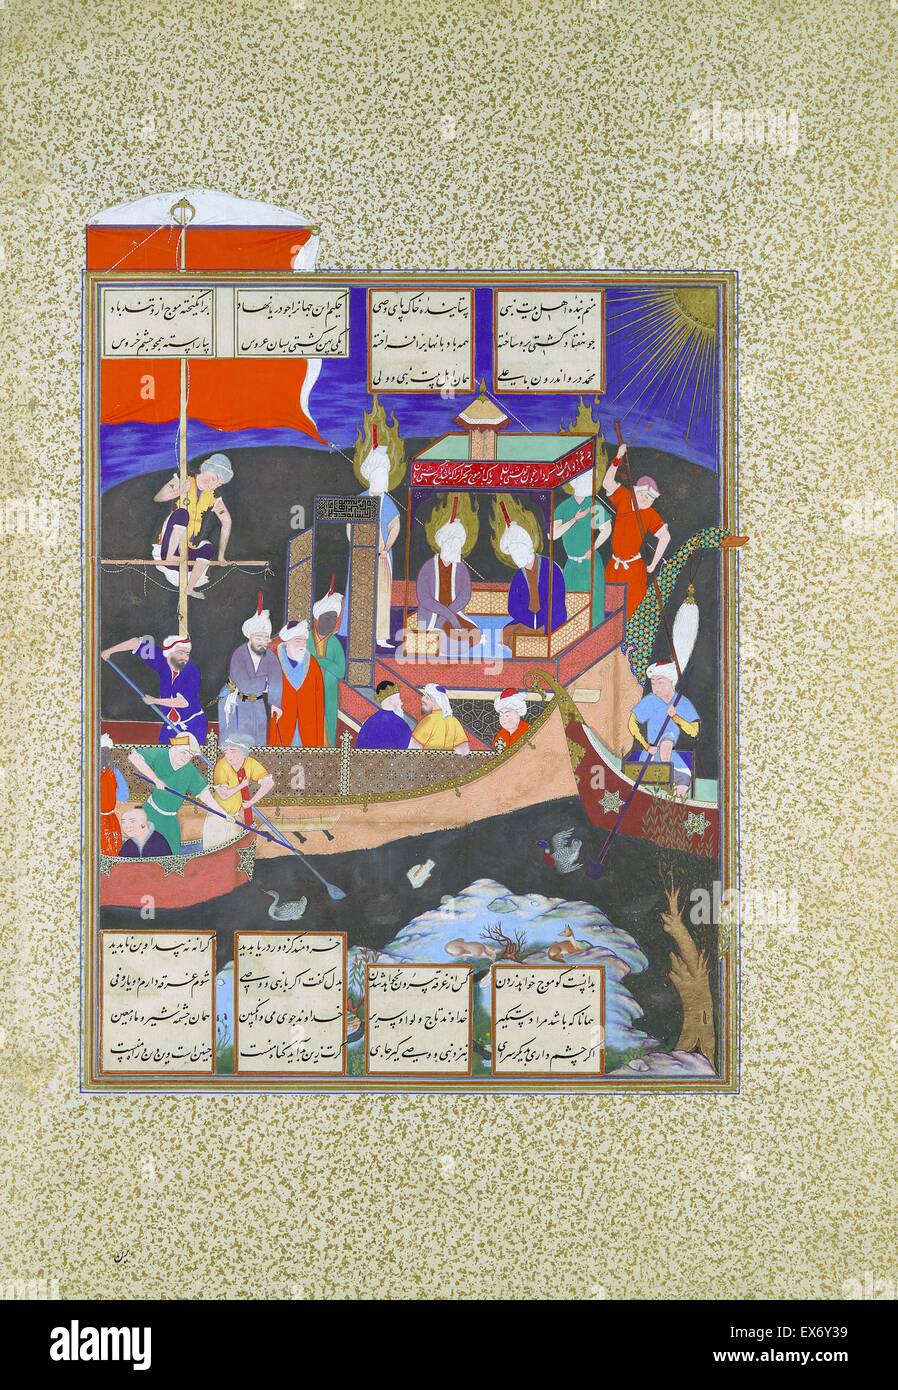 منم بنده اهل بیت نبی ستاینده خاک پای وصی حکیم این جهان را چو دریا نهاد برانگیخته موج ازو تندباد
چو هفتاد کشتی برو ساخته همه بادبانها برافراخته یکی پهن کشتی بسان عروس بیاراسته همچو چشم خروس
محمد درو اندرون با علی همان اهل بیت نبی و ولی
خردمند کز دور دریا بدید کرانه نه پیدا و بن ناپدید
بدانست کو موج خواهد زدن کس از غرق بیرون نخواهد شدن بدل گفت اگر با نبی و وصی شوم غرقه دارم دو یار وفی
همانا که باشد مرا دستگیر خداوند تاج و لوا و سریر خداوند جوی می و انگبین همان چشمه شیر و ماء معین
اگر چشم داری بدیگر سرای بنزد نبی و وصی گیر جای گرت زین بد آید گناه منست چنین است وین دین و راه منست
alamy
Image ID: EX6Y39
www.alamy.com